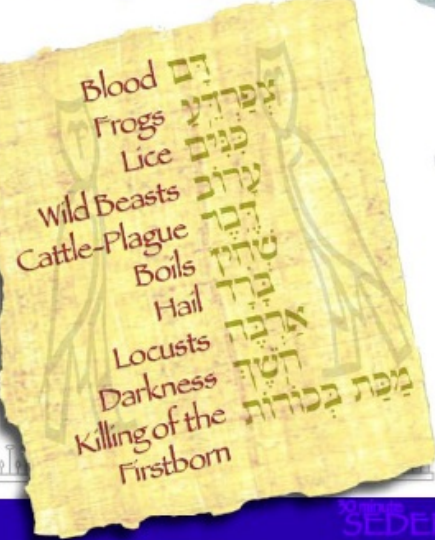 Blood דָּם
Frogs צְפַרְדֵּעַ
Lice כִּנִּים
Wild Beasts עָרוֹב
Cattle-Plague דֶּבֶר
Boils שְׁחִין
Hail בָּרָד
Locusts אַרְבֶּה
Darkness חֹשֶׁךְ
Killing of the מַכַּת בְּכוֹרוֹת
Firstborn
30 minute
SEDER